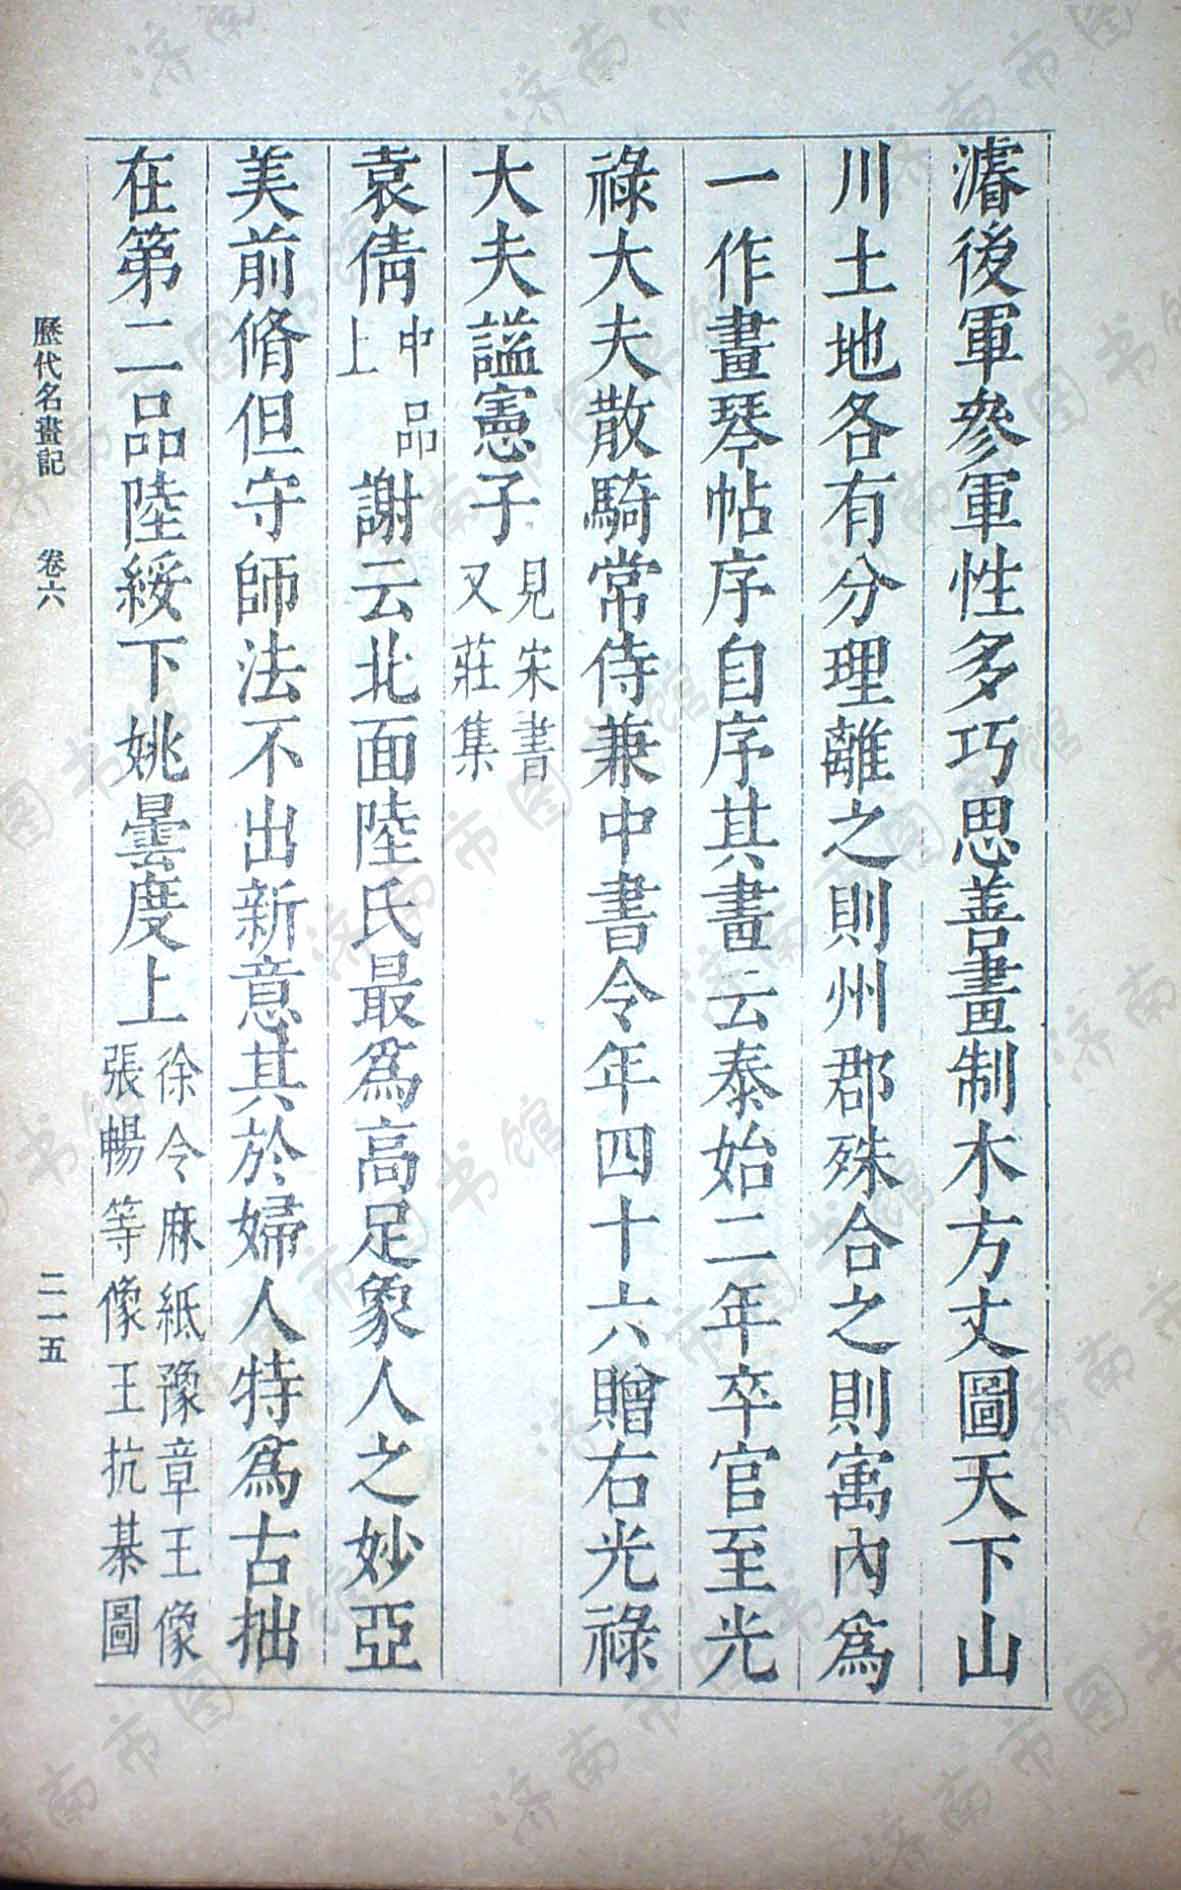 濬後軍參軍性多巧思善畫制木方丈圖天下山
川土地各有分理離之則州郡殊合之則寓內爲
一作畫琴帖序自序其畫云泰始二年卒官至光
祿大夫散騎常侍兼中書令年四十六贈右光祿
大夫謚憲子見宋書又莊集
袁倩中品上謝云北面陸氏最爲高足象人之妙亞
美前脩但守師法不出新意其於婦人特爲古拙
在第二品陸綏下姚曇度上徐令麻紙豫章王像張暢等像王抗棊圖
歷代名畫記 卷六 二一五
济南市图书馆